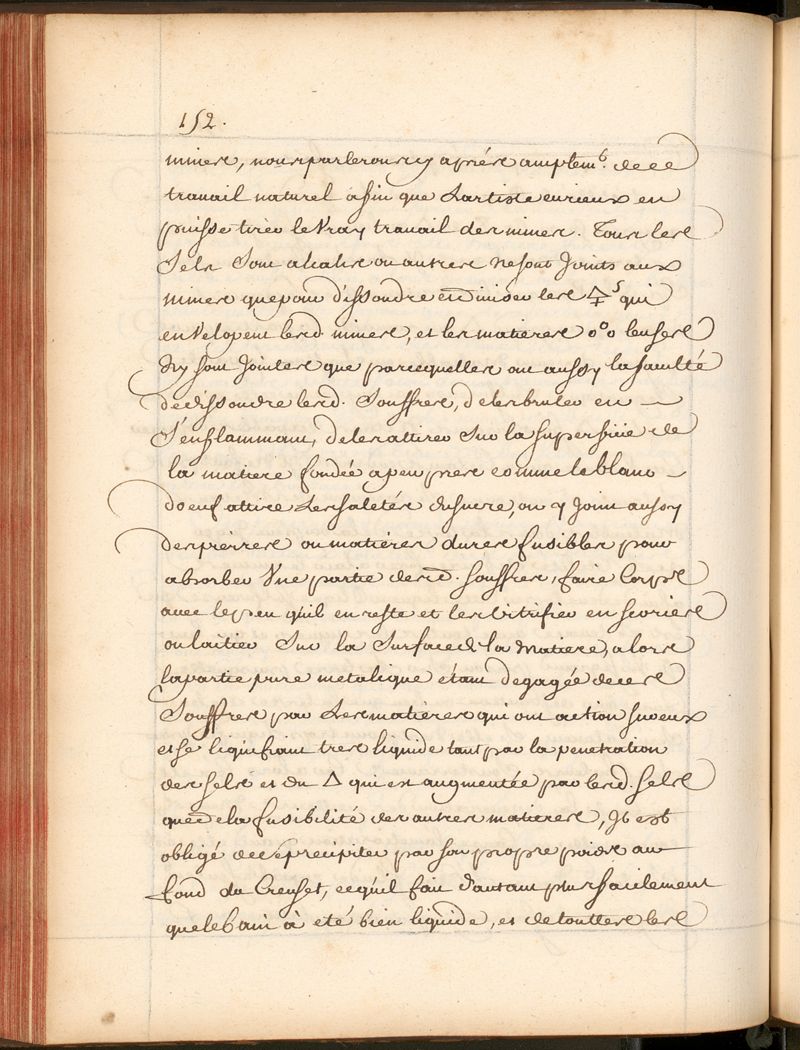 152.
mines, nous parlerons cy aprés amplem.^t de ce
travail naturel afin que L'artiste curieux en
puisse tirer le Vray travail des mines. Tous les
Sels Sont alcalis ou autres ne sont Joints aux
mines que pour dissoudre et diviser les 🜍^s qui
envelopent lesd. mines, et les matieres
N'y sont Jointes que parcequ'elles ont aussy la faculté
de dissoudre lesd. Souffres, de les bruler en
S'enflammant, de les attirer Sur la Superficie de
la matiere fondée a peu pres comme le blanc
doeuf attire Les saletés du sucre, on y Joint aussy
des pierres ou matiéres dures fusibles pour
absorber Vne partie desd. souffres, faire Corps
avec le peu qu'il en reste et les Vitrifier en scories
ou laitier Sur la Surface de la Matiere, alors
la partie pure metalique étant degagée de ces
Souffres par Les matiéres qui ont action sur eux
et se liquifiant tres liquide tant par la penetration
des sels et du △ qui est augmentée par lesd. sels
que de la fusibilité des autres matieres, Il est
obligé de se précipiter par son propre poids au
fond du Creuset, ce qu'il fait d'autant plus facilement
que le bain à eté bien liquide, et de touttes les